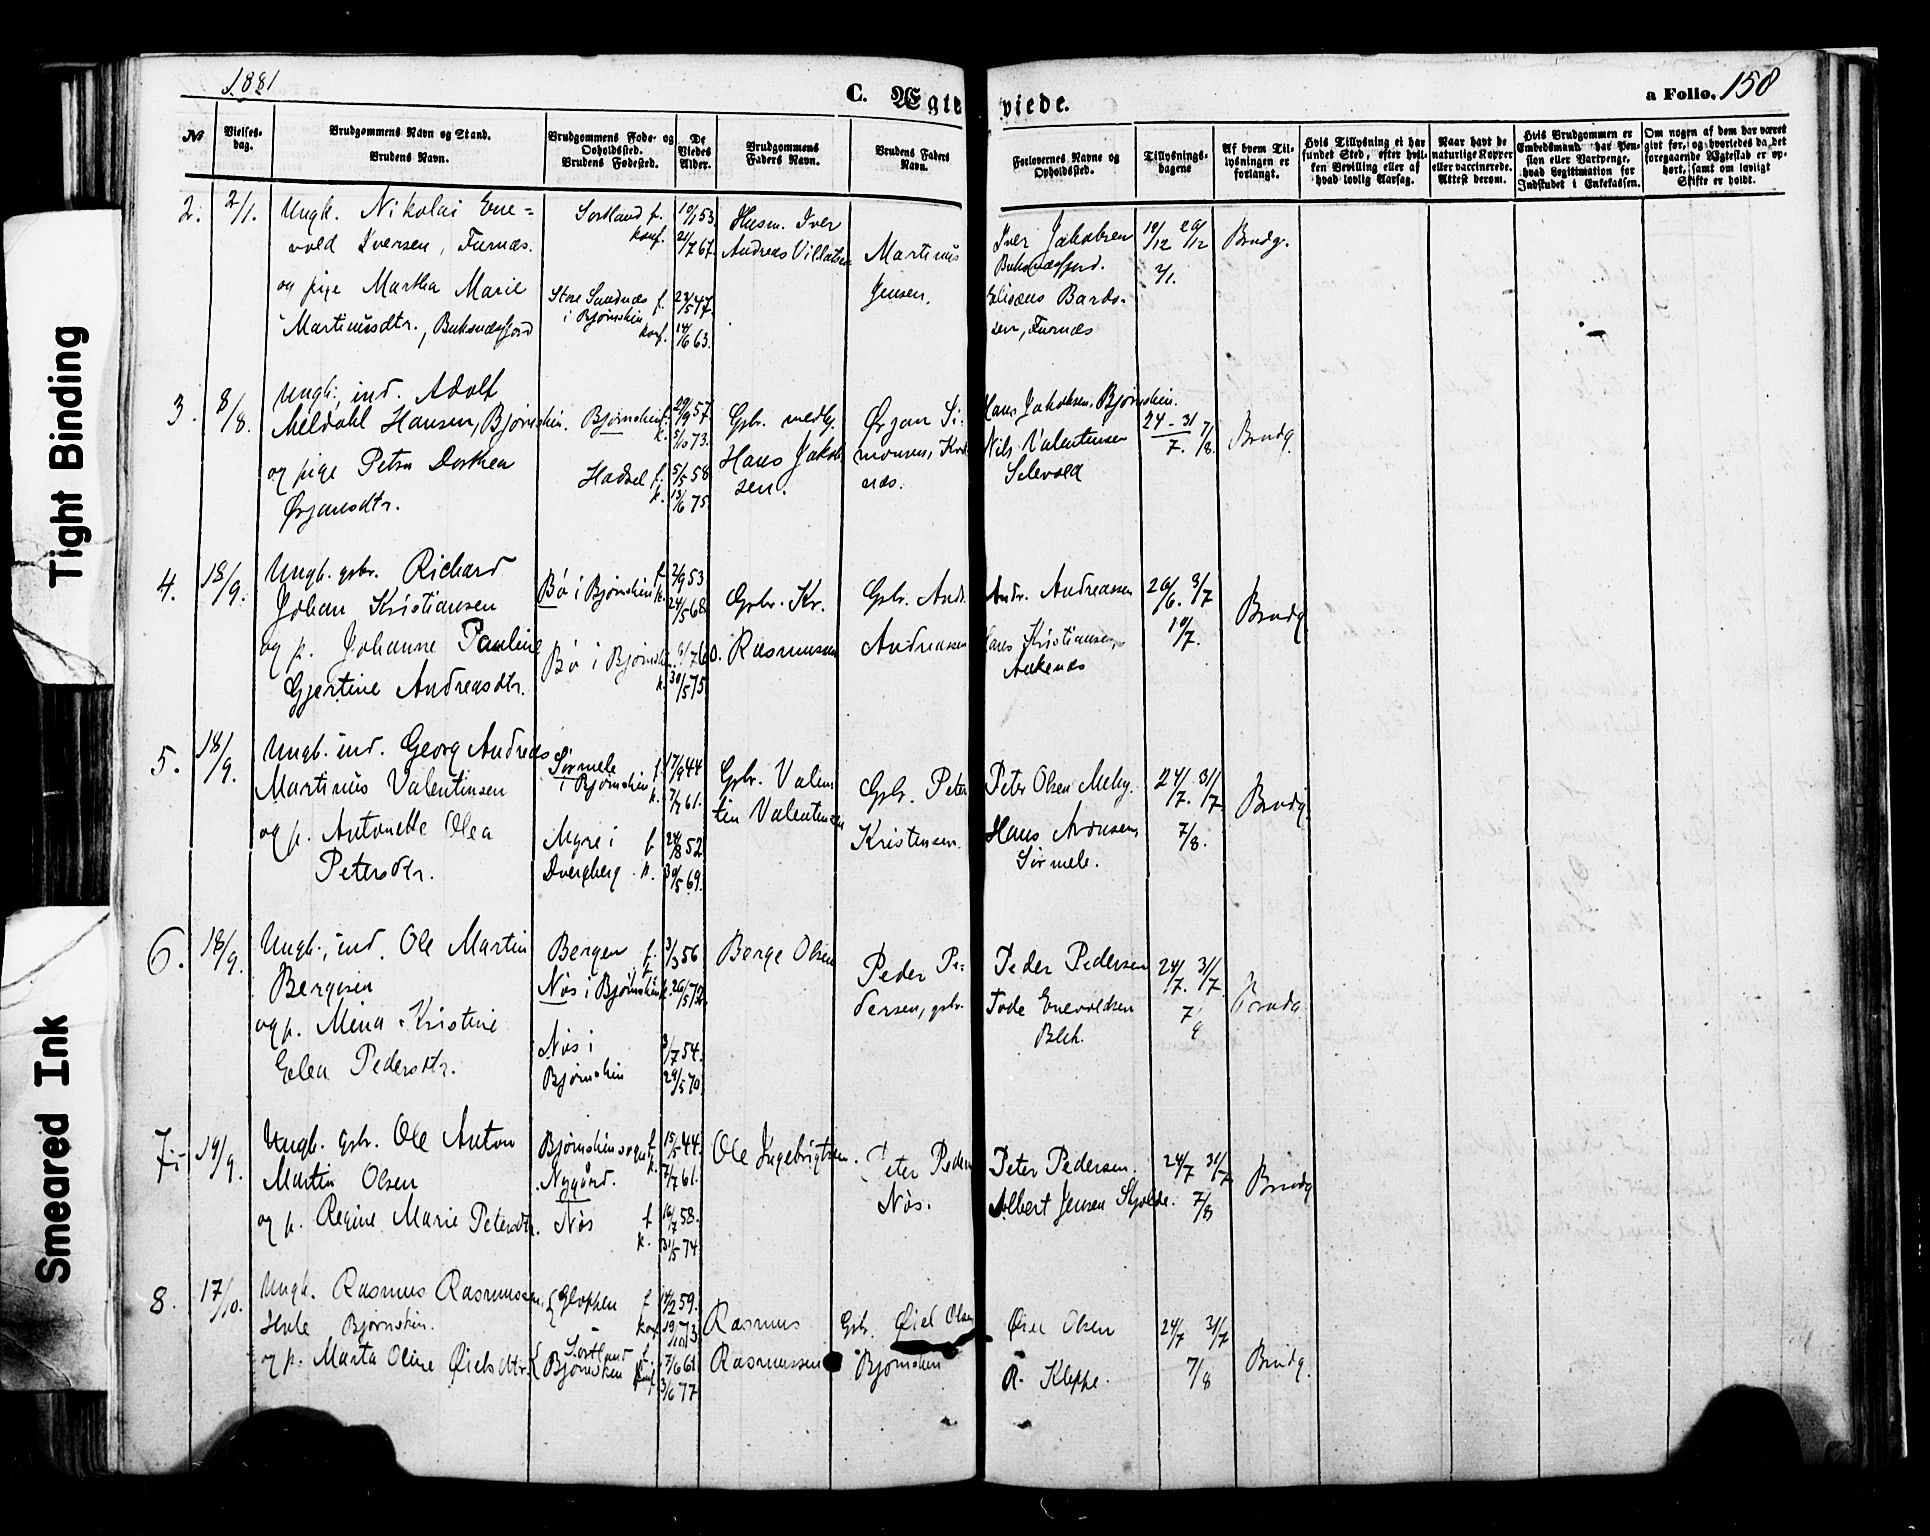 1881
C. Ægteviede.
a Folio. 158
Tight Binding
Smeared Ink
No
Vielses-
dag.
Brudgommens Navn og Stand.
Brudens Navn.
Brudgommens Føde- og
Opholdssted.
Brudens Fødested.
De
Viedes
Alder.
Brudgommens
Faders Navn.
Brudens Faders
Navn.
Forlovernes Navne og
Opholdssted.
Tillysnings-
dagene
Af hvem Til-
lysningen er
forlangt.
Hvis Tillysning ei har
fundet Sted, efter hvil-
ken Bevilling eller af
hvad lovlig Aarsag.
Naar havt de
naturlige Kopper
eller vaccinerede.
Attest derom.
Hvis Brudgommen er
Embedsmand har Pen-
sion eller Vartpenge,
hvad Legitimation for
Indskudet i Enkekassen.
Om nogen af dem har været
givt før, og hvorledes da det
foregaaende Ægteskab er op-
hørt, samt om lovligt
Skifte er holdt.
2. 2/1.
Ungk. Nikolai Ene=
vold Iversen, Furnæs.
og pige Martha Marie
Martinusdtr., Buksnæsfjord
Sortland f.
konf.
Store Sandnæs f.
i Bjørnskin
konf.
10/1 53.
21/7 67.
23/5 47.
14/6 63.
Husm. Iver
Andreas
Martinus
Jensen.
Iver Jakobsen
Buksnæsfjord.
Elisæus Bards-
sen, Furnæs
19/12 26/12
2/1.
Brudg.
3. 8/8.
Ungk., ind. Adolf
Meldahl Hansen, Bjørnskin.
og pige Petra Dorthea
Ørjansdtr.
Bjørnskin f.
k.
Hadsel f.
k.
29/9 57.
5/10 73.
5/5 58
13/6 75.
Gbr. medhj.
Hans Jakob
sen.
Ørjan Si=
monsen,
næs.
Hans Jakobsen, Bjørnskin.
Nils Valentinsen
Selevold
24 - 31 7/8.
7.
Brudg.
4. 18/9.
Ungk. gbr. Richard
Johan Kristiansen
og p. Johanne Pauline
Gjertine Andreasdtr.
Bø i Bjørnskin f.
k.
Bø i Bjørnsk.
k.
2/9 53
24/5 68.
30/5 75.
Gbr. Kr.
Rasmussen
Gbr. Andr.
Andreassen
Andr. Andreassen
Hans Kristiansen,
Aakenæs
26/6. 3/7
10/7.
Brudg.
5. 18/9.
Ungk. ind. Georg Andreas
Martinus Valentinsen
og p. Antonette Olea
Petersdtr.
Sørmele f.
i Bjørnskin
k.
Myre i f.
Dvergberg. k.
17/9 44
7/7 61.
24/8 52
30/5 69.
Gbr. Valen
tin Valentinsen
Gbr. Peter
Kristensen.
Peter Olsen Meby.
Hans
Sørmele.
24/7. 31/7
7/8.
Brudg.
6. 18/9.
Ungk., ind. Ole Martin
Bergesen
og p. Mina Kristine
Elea Pedersdtr.
Bergen f.
Nøs i Bjørnskin k.
Nøs i
Bjørnskin
3/3 56
26/5 72.
3/7 54.
29/5 70.
Berge Olsen
Peder Pe=
dersen, gbr.
Peder Pedersen
Tode Enevoldsen
Blek.
24/7. 31/7
Brudg.
7. 19/9.
Ungk. gbr. Ole Anton
Martin Olsen
og p. Regine Marie Petersdtr.
Bjørnskin sogn f.
k.
Nygård.
Nøs f.
k.
15/5 44.
7/7 61.
16/7 58.
31/5 74.
Ole Ingebrigtsen.
Peter Peders
Nøs.
Peter Pedersen.
Albert Jensen Skjolde.
24/7 31/7
7/8
Brudg.
8. 17/10.
Ungk. Rasmus Rasmussen,
Bjørnskin.
og p. Marta Oline Øielsdtr.
Gloppen f.
konf.
Sortland f.
Bjørnskin konf.
14/2 59.
7/6 61.
3/6 77
Rasmus
Rasmussen
Gbr. Øiel Olsen
Bjørnskin
Øiel Olsen
R. Kleppe.
24/7 31/7
7/8
Brudg.